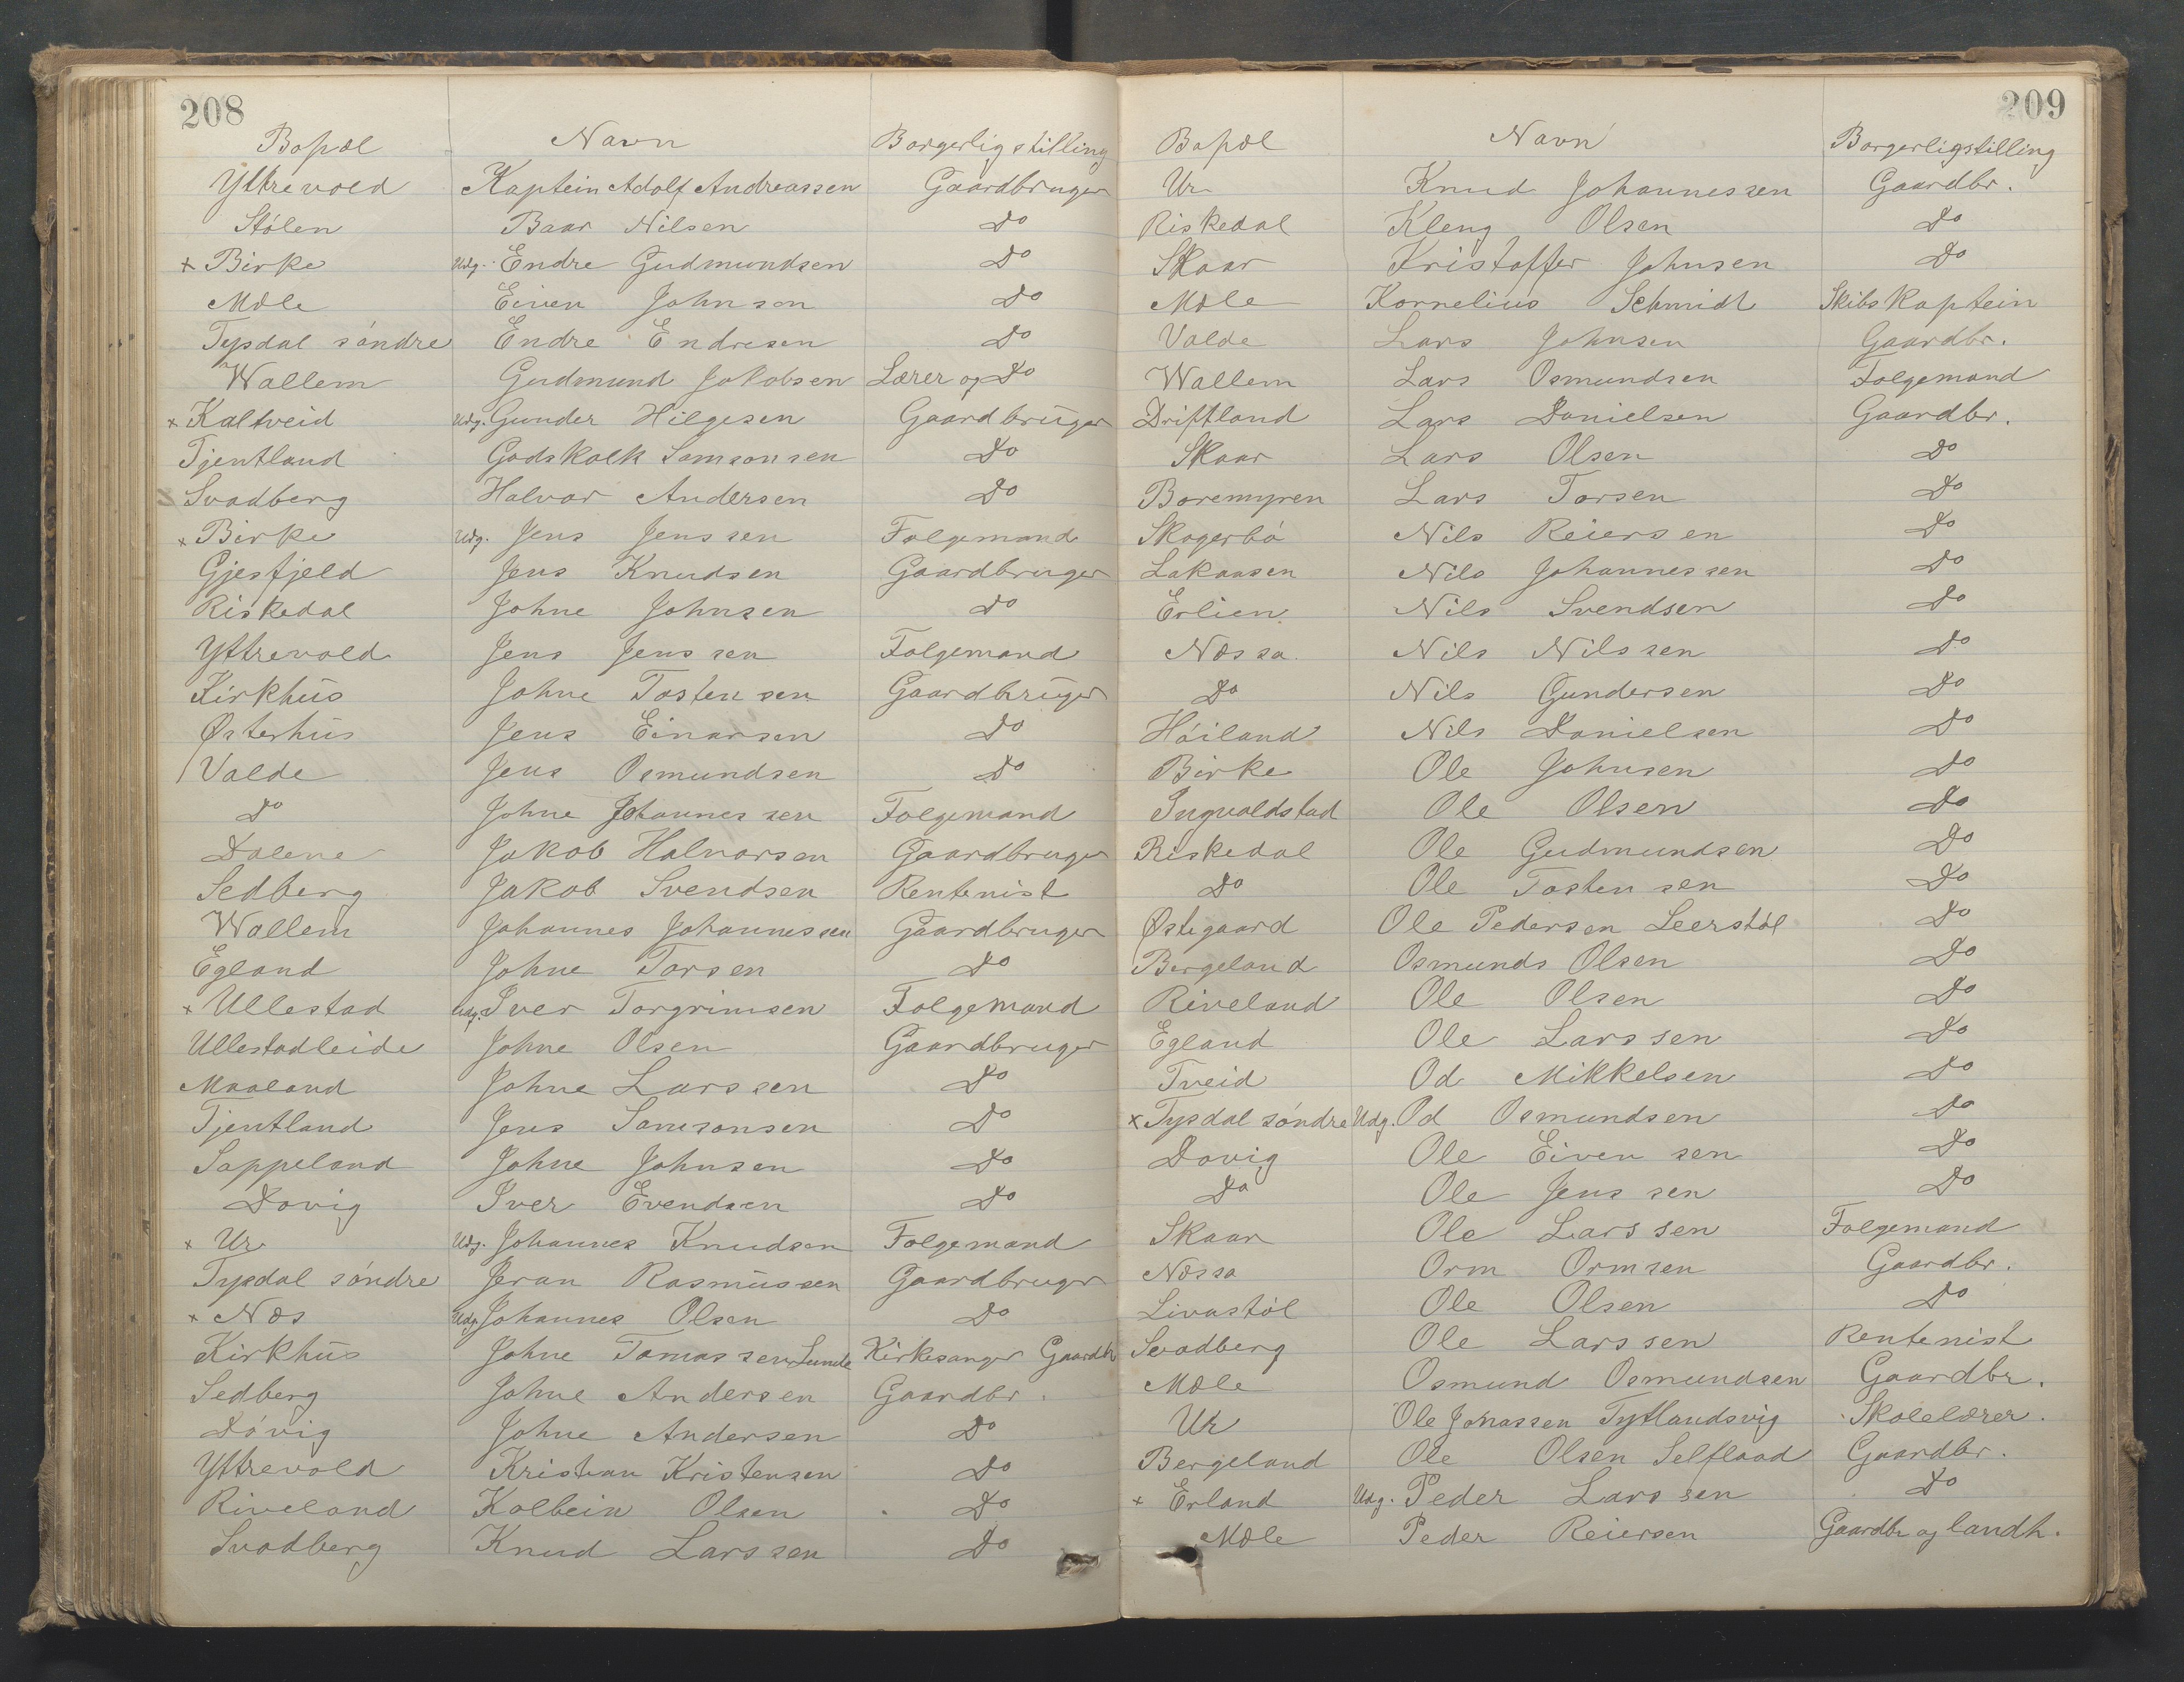 208
Bopæl Navn Borgerligstilling
Yttrevold Kaptein Adolf Andreassen Gaardbruger
Stólen Baar Nilsen Do
x Birke Udg. Endre Gudmundsen Do
Mæle Eiven Johnsen Do
Tysdal søndre Endre Endresen Do
Wallem Gudmund Jakobsen Lærer og Do
x Kaltveid Udg. Gunder Hilgesen Gaardbruger
Tjentland Godskalk Samsonsen Do
Svadberg Halvor Andersen Do
x Birke Udg. Jens Jenssen Folgemand
Gjesfjeld Jens Knudsen Gaardbruger
Riskedal Johne Johnsen Do
Yttrevold Jens Jenssen Folgemand
Kirkhus Johne Tostensen Gaardbruger
Østerhus Jens Einarsen Do
Valde Jens Osmundsen Do
Do Johne Johannessen Folgemand
Dalene Jakob Halvorsen Gaardbruger
Sedberg Jakob Svendsen Rentenist
Wallem Johannes Johannessen Gaardbruger
Egland Johne Torsen Do
x Ullestad Udg. Iver Torgrimsen Folgemand
Ullestadleide Johne Olsen Gaardbruger
Maaland Johne Larssen Do
Tjentland Jens Samsonsen Do
Sappeland Johne Johnsen Do
Dovig Iver Evendsen Do
x Ur Udg. Johannes Knudsen Folgemand
Tysdal søndre Jeran Rasmussen Gaardbruger
x Næs Udg. Johannes Olsen Do
Kirkhus Johne Tomassen Lunde Kirkesanger Gaardb
Sedberg Johne Andersen Gaardbr.
Dóvig Johne Andersen Do
Yttrevold Kristian Kristensen Do
Riveland Kolbein Olsen Do
Svadberg Knud Larssen Do
209
Bopæl Navn Borgerligstilling
Ur Knud Johannessen Gaardbr.
Riskedal Kleng Olsen Do
Skaar Kristoffer Johnsen Do
Mæle Kornelius Schmidt Skibskaptein
Valde Lars Johnsen Gaardbr.
Wallem Lars Osmundsen Folgemand
Driftland Lars Danielsen Gaardbr.
Skaar Lars Olsen Do
Boremyren Lars Torsen Do
Skogerbó Nils Reiersen Do
Lakaasen Nils Johannessen Do
Erlien Nils Svendsen Do
Næssa Nils Nilssen Do
Do Nils Gundersen Do
Hóiland Nils Danielsen Do
Birke Ole Johnsen Do
Ingvaldstad Ole Olsen Do
Riskedal Ole Gudmundsen Do
Do Ole Tostensen Do
Østegaard Ole Pedersen Leerstól Do
Bergeland Osmunds Olsen Do
Riveland Ole Olsen Do
Egland Ole Larssen Do
Tveid Od Mikkelsen Do
x Tysdal sóndre Udg. Od Osmundsen Do
Dovig Ole Eivensen Do
Do Ole Jenssen Do
Skaar Ole Larssen Folgemand
Næssa Orm Ormsen Gaardbr.
Livastól Ole Olsen Do
Svadberg Ole Larssen Rentenist
Mæle Osmund Osmundsen Gaardbr.
Ur Ole Jonassen Tytlandsvig Skolelærer.
Bergeland Ole Olsen Selflaad Gaardbr.
x Erland Udg. Peder Larssen Do
Mæle Peder Reiersen Gaardbr og landh.